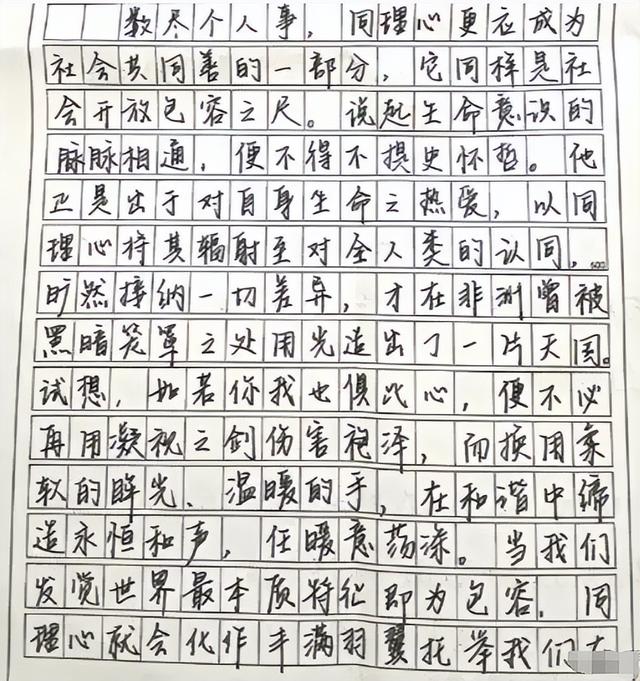 数尽个人事，同理心更应成为
社会共同善的一部分，它同样是社
会开放包容之尺。说起生命意识的
脉脉相通，便不得不提史怀哲。他
正是出于对自身生命之热爱，以同
理心将其辐射至对全人类的认同，
旷然接纳一切差异，才在非洲曾被
黑暗笼罩之处用光造出了一片天国。
试想，如若你我也俱此心，便不必
再用凝视之剑伤害袍泽，而换用柔
软的眸光、温暖的手，在和谐中缔
造永恒和声，任暖意荡漾。当我们
发觉世界最本质特征即为包容，同
理心就会化作丰满羽翼托举我们